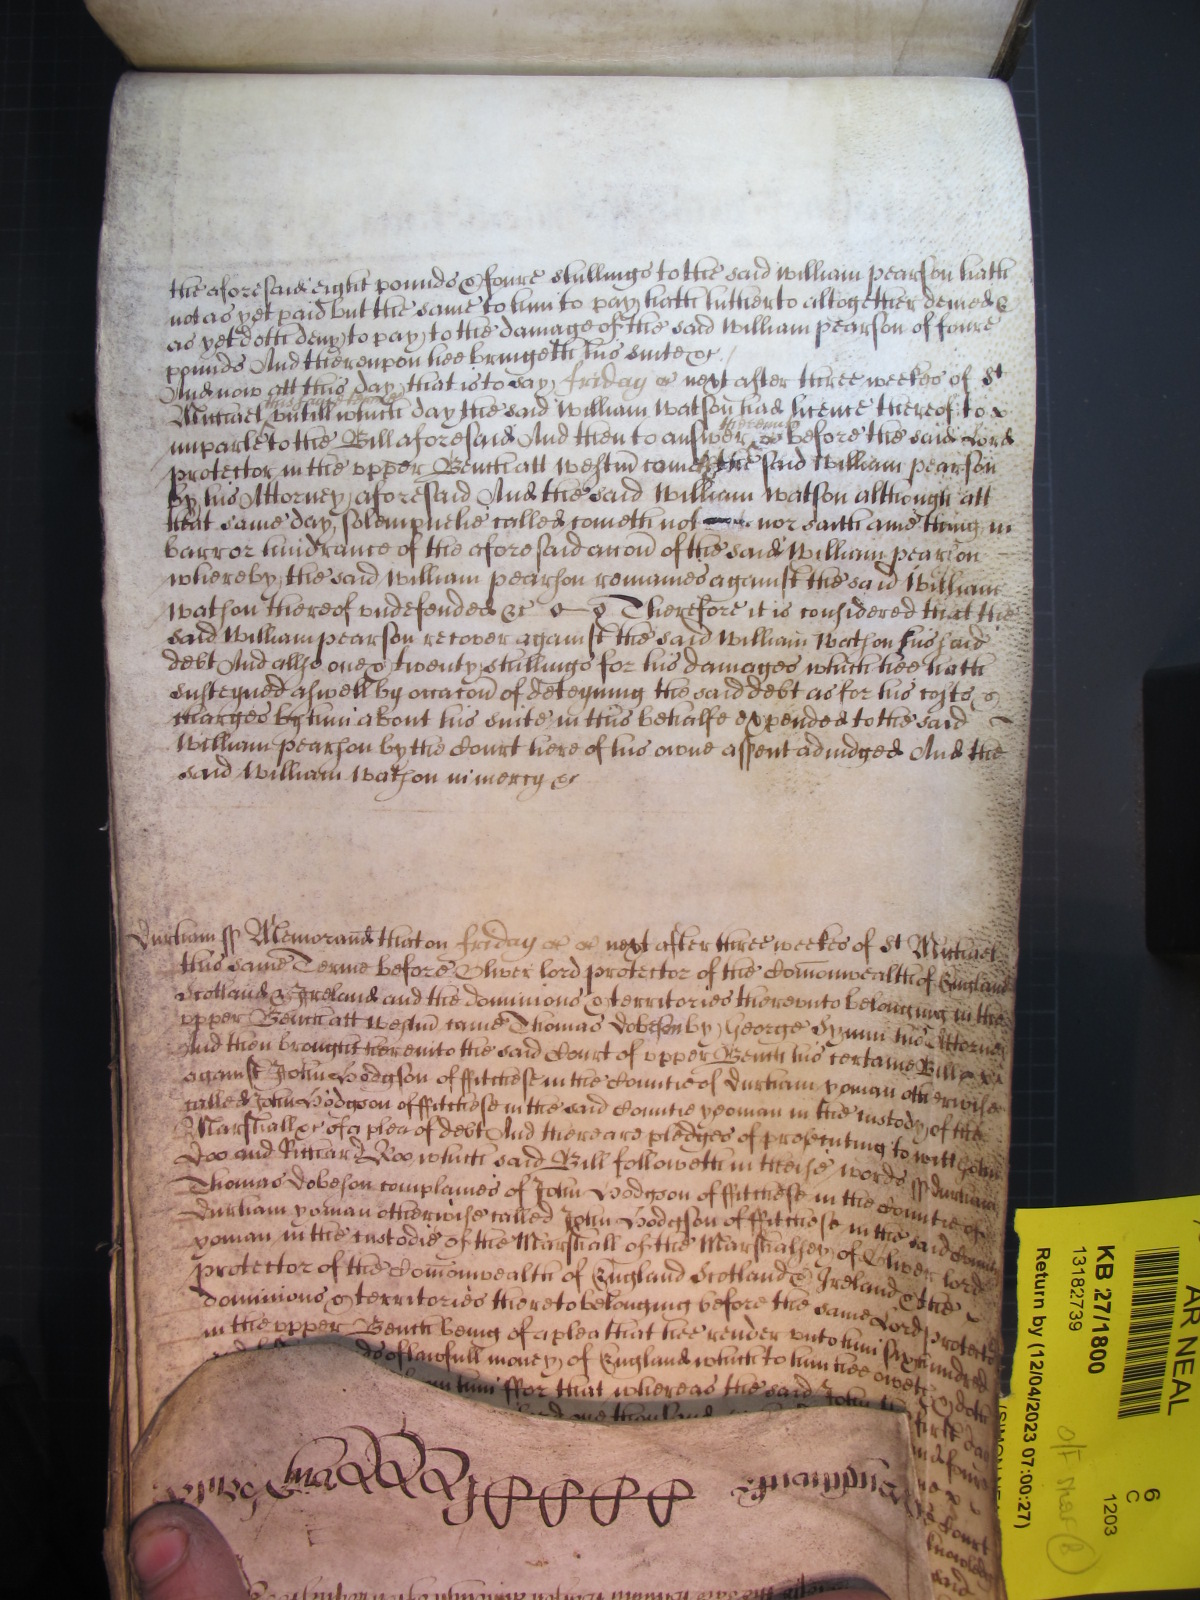 the aforesaid eight pounds & foure shillings to the said William Pearson hath
not as yet paid but the same to him to pay hath hitherto altogether denied &
as yet doth deny to pay to the damage of the said William Pearson of foure
pounds And thereupon hee bringeth his suite &c.
And now att this day that is to say friday &c next after three weekes of St
Michael untill which day the said William Watson had licence thereof to
imparle to the Bill aforesaid And then to answer &c before the said Lord
thereunto
protector in the upper Bench att Westm came the said William Pearson
by his Attorney aforesaid And the said William Watson although att
that same day solempnelie called cometh not nor saith anie thing in
barr or hindrance of the aforesaid accon of the said William Pearson
whereby the said William Pearson remaines against the said William
Watson thereof undefended &c Therefore it is considered that the
said William Pearson recover against the said William Watson his said
debt And allso one & twenty shillings for his damages which hee hath
susteyned aswell by occacon of deteyning the said debt as for his costs &
charges by him about his suite in this behalfe expended to the said
William Pearson by the Court here of his owne assent adiudged And the
said William Watson in mercy &c
Durham ss Memorand that on friday &c &c next after three weekes of St Michael
this same Terme before Oliver lord protector of the Comonwealth of England
Scotland & Ireland and the dominions & territories thereunto belonging in the
upper Bench att Westm came Thomas Dobeson by George his Attorney
And then brought here into the said Court of upper Bench his certaine Bill
against John Hodgson of ffitchese in the Countie of Durham yoman otherwise
called John Hodgson of ffitchese in the said Countie yeoman in the custody of the
Marshall &c of a plea of debt And there are pledges of prosecuting to witt John
Doo and Richard Roo which said Bill followeth in theise words ss Durham
Thomas Dobeson complaines of John Hodgson of ffitchese in the Countie of
Durham yoman otherwise called John Hodgson of ffitchese in the said Countie
yoman in the custodie of the Marshall of the Marshalsey of Oliver lord
protector of the Comonwealth of England Scotland & Ireland & the
dominions & territories thereto belonging before the same Lord protector
in the upper Bench being of a plea that hee render unto him six hundred
of lawfull money of England which to him hee oweth & doth
him ffor that whereas the said John
one thousand
first day
Court
knowledg
and
AR NEAL
KB 27/1800
13182739
Return by (12/04/2023 07:00:27)
6
C
1203